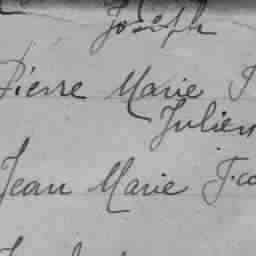 Joseph
Pierre Marie
Julien
Jean Marie